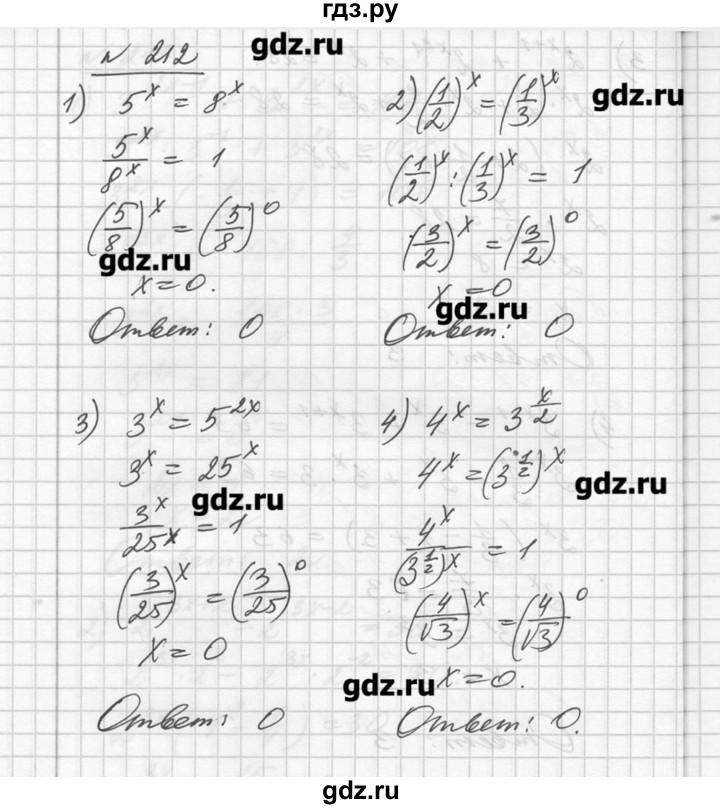 гдз.ру
№ 212
gdz.ru
1) 5^x = 8^x
5^x/8^x = 1
(5/8)^x = (5/8)^0
gdz.ru
x = 0.
Ответ: 0
2) (1/2)^x = (1/3)^x
gdz.ru
(1/2)^x : (1/3)^x = 1
(3/2)^x = (3/2)^0
x = 0
gdz.ru
Ответ: 0
3) 3^x = 5^{2x}
3^x = 25^x
gdz.ru
3^x/25^x = 1
(3/25)^x = (3/25)^0
x = 0
Ответ: 0
4) 4^x = 3^{x/2}
4^x = (3^{1/2})^x
gdz.ru
4^x/(3^{1/2})^x = 1
(4/√3)^x = (4/√3)^0
gdz.ru
x = 0.
Ответ: 0.
gdz.ru